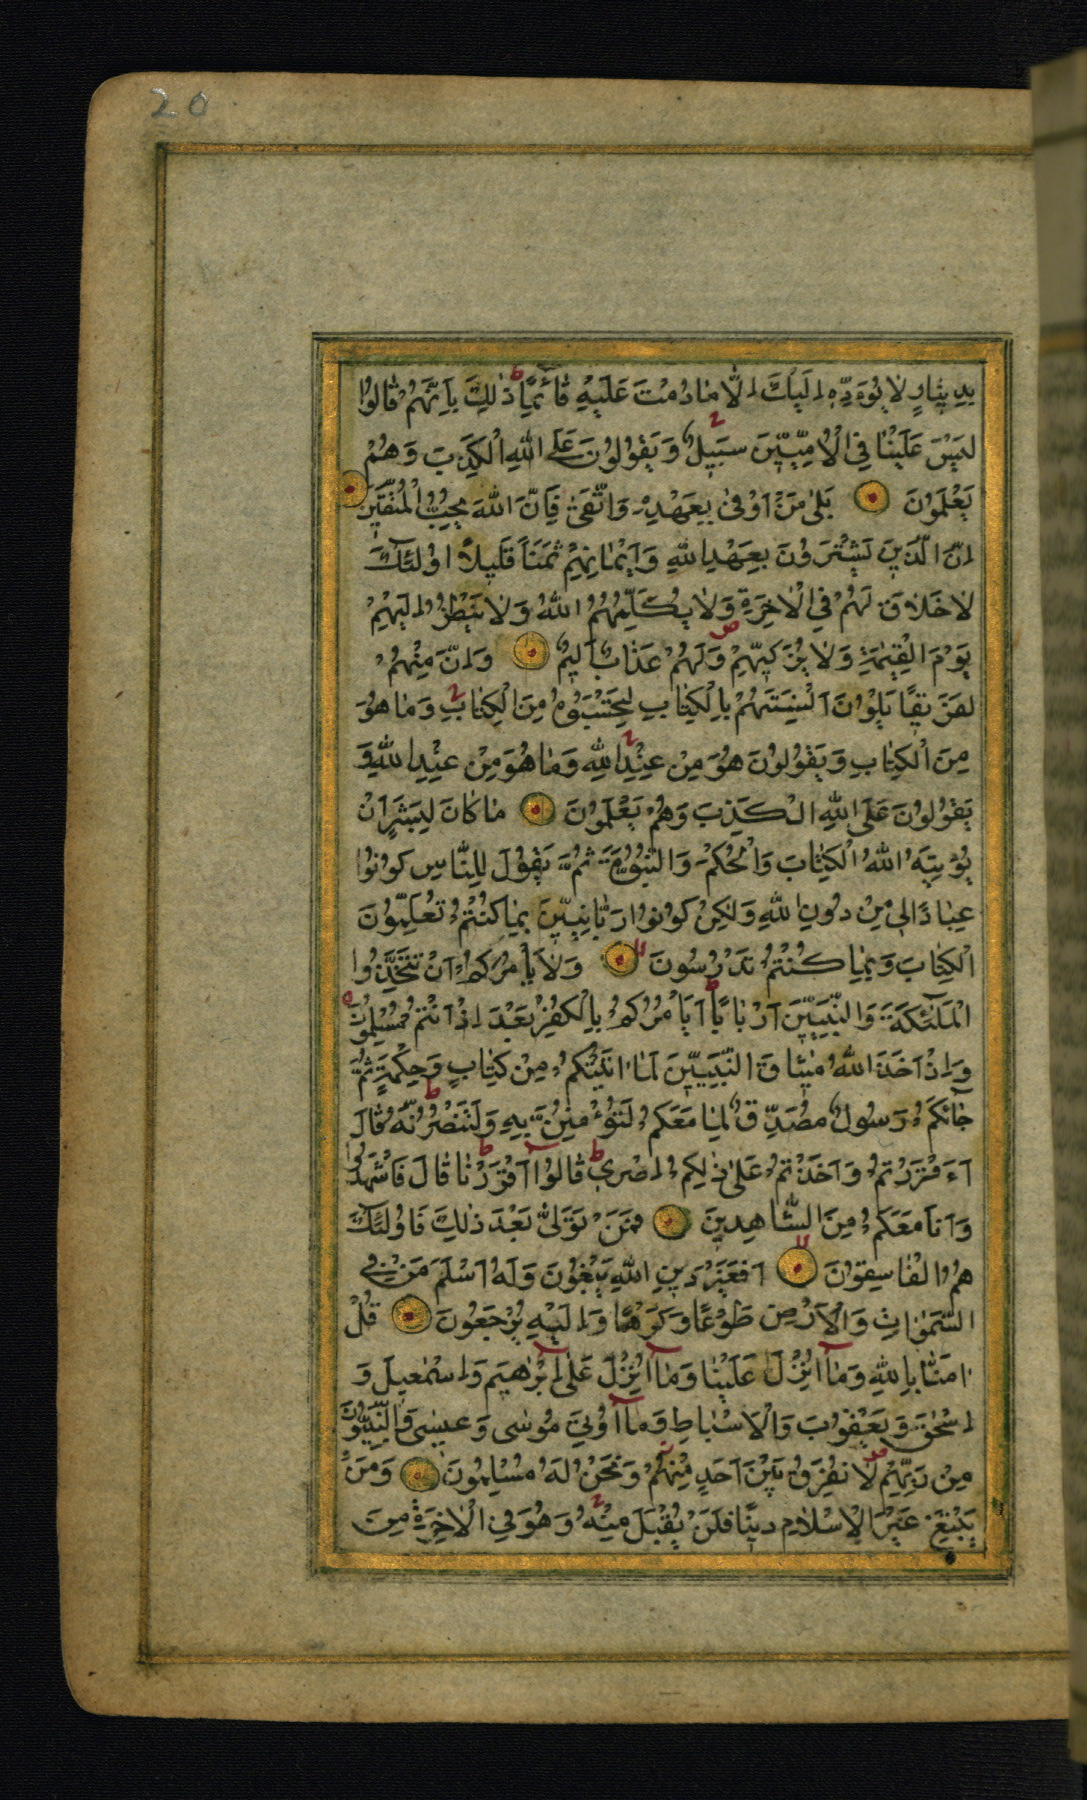 20
بِدِينَارٍ لَا يُؤَدِّهِ إِلَيْكَ إِلَّا مَا دُمْتَ عَلَيْهِ قَآئِمًا ط ذٰلِكَ بِأَنَّهُمْ قَالُوا
لَيْسَ عَلَيْنَا فِي الْأُمِّيِّينَ سَبِيلٌ وَيَقُولُونَ عَلَى اللهِ الْكَذِبَ وَهُمْ
يَعْلَمُونَ بَلٰى مَنْ أَوْفٰى بِعَهْدِهِ وَاتَّقٰى فَإِنَّ اللهَ يُحِبُّ الْمُتَّقِينَ
إِنَّ الَّذِينَ يَشْتَرُونَ بِعَهْدِ اللهِ وَأَيْمَانِهِمْ ثَمَنًا قَلِيلًا أُولٰئِكَ
لَا خَلَاقَ لَهُمْ فِي الْآخِرَةِ وَلَا يُكَلِّمُهُمُ اللهُ وَلَا يَنْظُرُ إِلَيْهِمْ
يَوْمَ الْقِيٰمَةِ وَلَا يُزَكِّيهِمْ ص وَلَهُمْ عَذَابٌ أَلِيمٌ وَإِنَّ مِنْهُمْ
لَفَرِيقًا يَلْوُنَ أَلْسِنَتَهُمْ بِالْكِتَابِ لِتَحْسَبُوهُ مِنَ الْكِتَابِ وَمَا هُوَ
مِنَ الْكِتَابِ وَيَقُولُونَ هُوَ مِنْ عِنْدِ اللهِ وَمَا هُوَ مِنْ عِنْدِ اللهِ وَ
يَقُولُونَ عَلَى اللهِ الْكَذِبَ وَهُمْ يَعْلَمُونَ مَا كَانَ لِبَشَرٍ أَنْ
يُؤْتِيَهُ اللهُ الْكِتَابَ وَالْحُكْمَ وَالنُّبُوَّةَ ثُمَّ يَقُولَ لِلنَّاسِ كُونُوا
عِبَادًا لِي مِنْ دُونِ اللهِ وَلٰكِنْ كُونُوا رَبَّانِيِّينَ بِمَا كُنْتُمْ تُعَلِّمُونَ
الْكِتَابَ وَبِمَا كُنْتُمْ تَدْرُسُونَ وَلَا يَأْمُرَكُمْ أَنْ تَتَّخِذُوا
الْمَلٰئِكَةَ وَالنَّبِيِّينَ أَرْبَابًا ط أَيَأْمُرُكُمْ بِالْكُفْرِ بَعْدَ إِذْ أَنْتُمْ مُسْلِمُونَ
وَإِذْ أَخَذَ اللهُ مِيثَاقَ النَّبِيِّينَ لَمَا اٰتَيْتُكُمْ مِنْ كِتَابٍ وَحِكْمَةٍ ثُمَّ
جَآئَكُمْ رَسُولٌ مُصَدِّقٌ لِمَا مَعَكُمْ لَتُؤْمِنُنَّ بِهِ وَلَتَنْصُرُنَّهُ ط قَالَ
ءَأَقْرَرْتُمْ وَأَخَذْتُمْ عَلٰى ذٰلِكُمْ إِصْرِي ط قَالُوا أَقْرَرْنَا ط قَالَ فَاشْهَدُوا
وَأَنَا مَعَكُمْ مِنَ الشَّاهِدِينَ فَمَنْ تَوَلّٰى بَعْدَ ذٰلِكَ فَأُولٰئِكَ
هُمُ الْفَاسِقُونَ أَفَغَيْرَ دِينِ اللهِ يَبْغُونَ وَلَهُ أَسْلَمَ مَنْ فِي
السَّمٰوَاتِ وَالْأَرْضِ طَوْعًا وَكَرْهًا وَإِلَيْهِ يُرْجَعُونَ قُلْ
اٰمَنَّا بِاللهِ وَمَا أُنْزِلَ عَلَيْنَا وَمَا أُنْزِلَ عَلٰى إِبْرٰهِيمَ وَإِسْمٰعِيلَ وَ
إِسْحٰقَ وَيَعْقُوبَ وَالْأَسْبَاطِ وَمَا أُوتِيَ مُوسٰى وَعِيسٰى وَالنَّبِيُّونَ
مِنْ رَبِّهِمْ ص لَا نُفَرِّقُ بَيْنَ أَحَدٍ مِنْهُمْ وَنَحْنُ لَهُ مُسْلِمُونَ وَمَنْ
يَبْتَغِ غَيْرَ الْإِسْلَامِ دِينًا فَلَنْ يُقْبَلَ مِنْهُ وَهُوَ فِي الْآخِرَةِ مِنَ